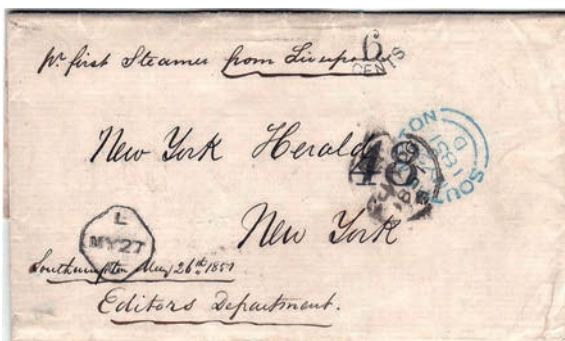 pr first Steamer from Liverpool
6
CENTS
New York Herald
48
SOUTHAMPTON
1851
L
MY27
New York
Southampton May 26th 1851
Editors Department.